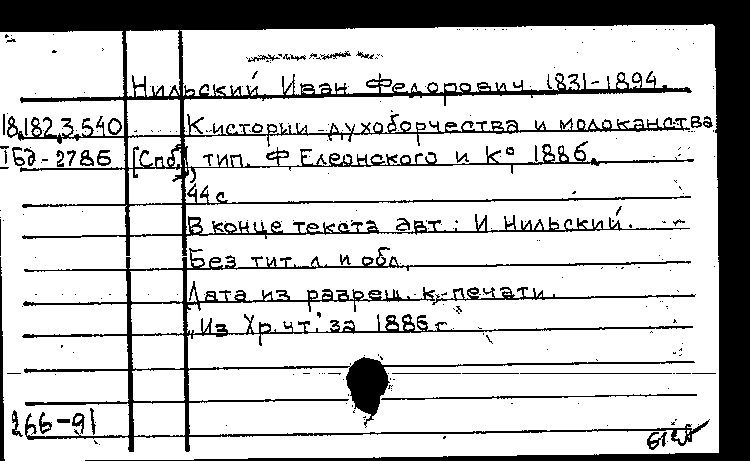 Нильский, Иван Федорович, 1831-1894.
18.182.3.540 К истории духоборчества и молоканства
[Спб.], тип. Ф. Елеонского и К°, 1886.
44 с
В конце текста авт.: И Нильский.
Без тит. л. и обл.
Дата из разреш. к печати.
"Из Хр. чт." за 1886 г
266-91